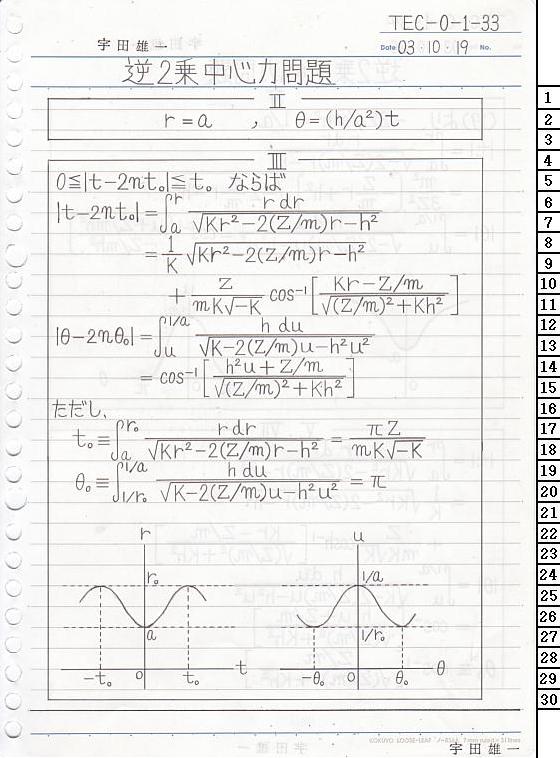 TEC-0-1-33
宇田雄一
Date 03・10・19 No.
逆2乗中心力問題
II
r = a , θ = (h/a²)t
III
0≦|t-2nt₀|≦t₀ ならば
|t-2nt₀| = ∫ₐʳ r dr / √(Kr²-2(Z/m)r-h²)
= 1/K √(Kr²-2(Z/m)r-h²)
+ Z / (mK√-K) cos⁻¹[ (Kr-Z/m) / √((Z/m)²+Kh²) ]
|θ-2nθ₀| = ∫ᵤ^(1/a) h du / √(K-2(Z/m)u-h²u²)
= cos⁻¹[ (h²u+Z/m) / √((Z/m)²+Kh²) ]
ただし、
t₀ ≡ ∫ₐ^(r₀) r dr / √(Kr²-2(Z/m)r-h²) = πZ / (mK√-K)
θ₀ ≡ ∫_(1/r₀)^(1/a) h du / √(K-2(Z/m)u-h²u²) = π
r
r₀
a
-t₀ 0 t₀ t
u
1/a
1/r₀
-θ₀ 0 θ₀ θ
KOKUYO LOOSE-LEAF
宇田雄一
1
2
3
4
5
6
7
8
9
10
11
12
13
14
15
16
17
18
19
20
21
22
23
24
25
26
27
28
29
30